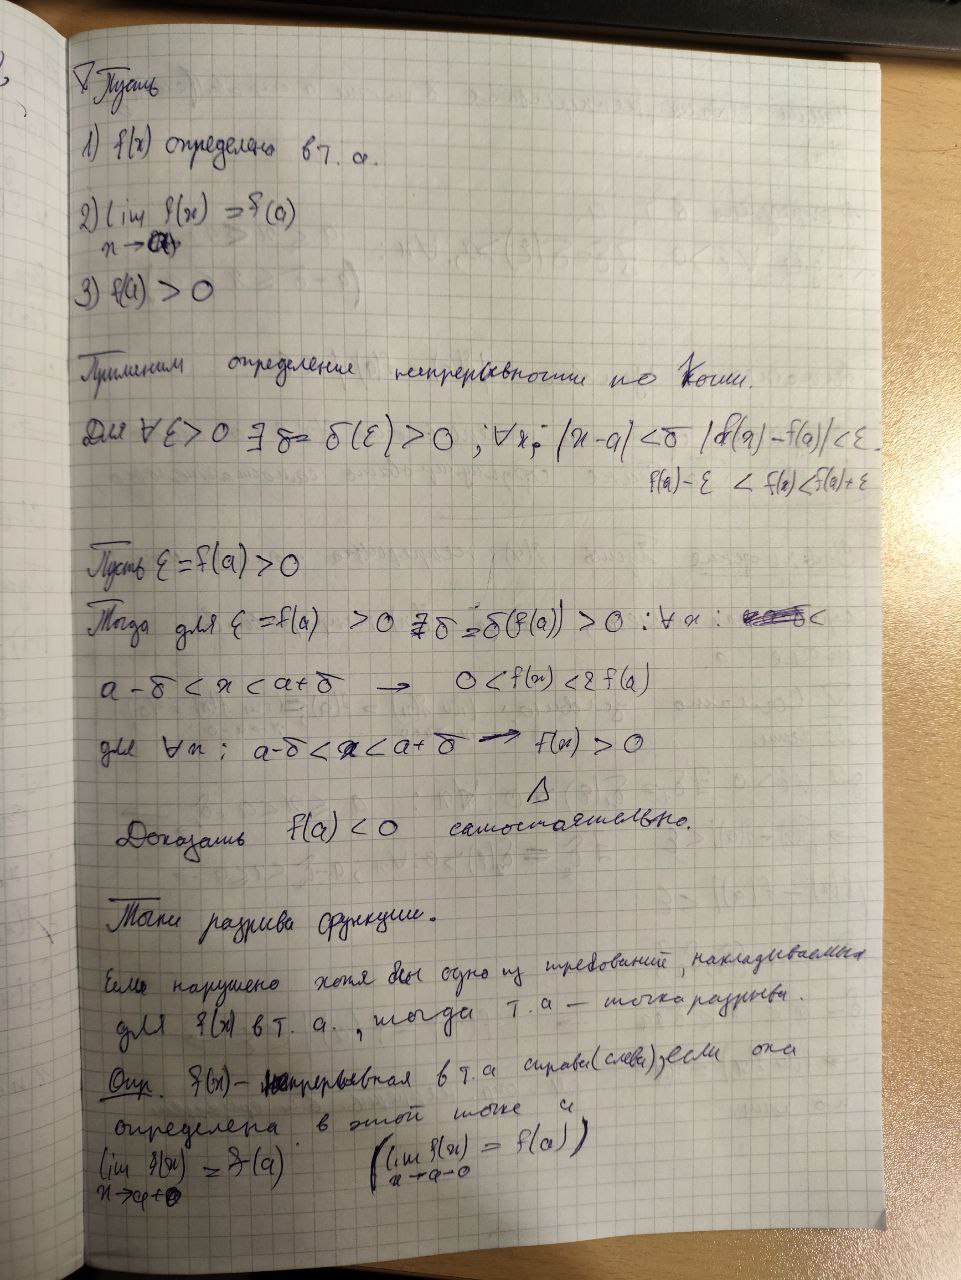 ∇ Пусть
1) f(x) определена в т. а.
2) lim f(x) = f(a)
x→a
3) f(a) > 0
Применим определение непрерывности по Коши.
Для ∀ε>0 ∃ δ= δ(ε) > 0 ; ∀x: |x-a| < δ |f(x) - f(a)| < ε.
f(a) - ε < f(x) < f(a)+ε
Пусть ε = f(a) > 0
Тогда для ε = f(a) > 0 ∃ δ = δ(f(a)) > 0 : ∀x :
a-δ < x < a+δ → 0 < f(x) < 2f(a)
для ∀x : a-δ < x < a+δ → f(x) > 0
Δ
Доказать f(a) < 0 самостоятельно.
Точки разрыва функции.
Если нарушено хотя бы одно из требований, накладываемых
для f(x) в т. а., тогда т. а – точка разрыва.
Опр. f(x) – непрерывная в т. а справа (слева), если она
определена в этой точке и
lim f(x) = f(a) (lim f(x) = f(a))
x→a+0 x→a-0